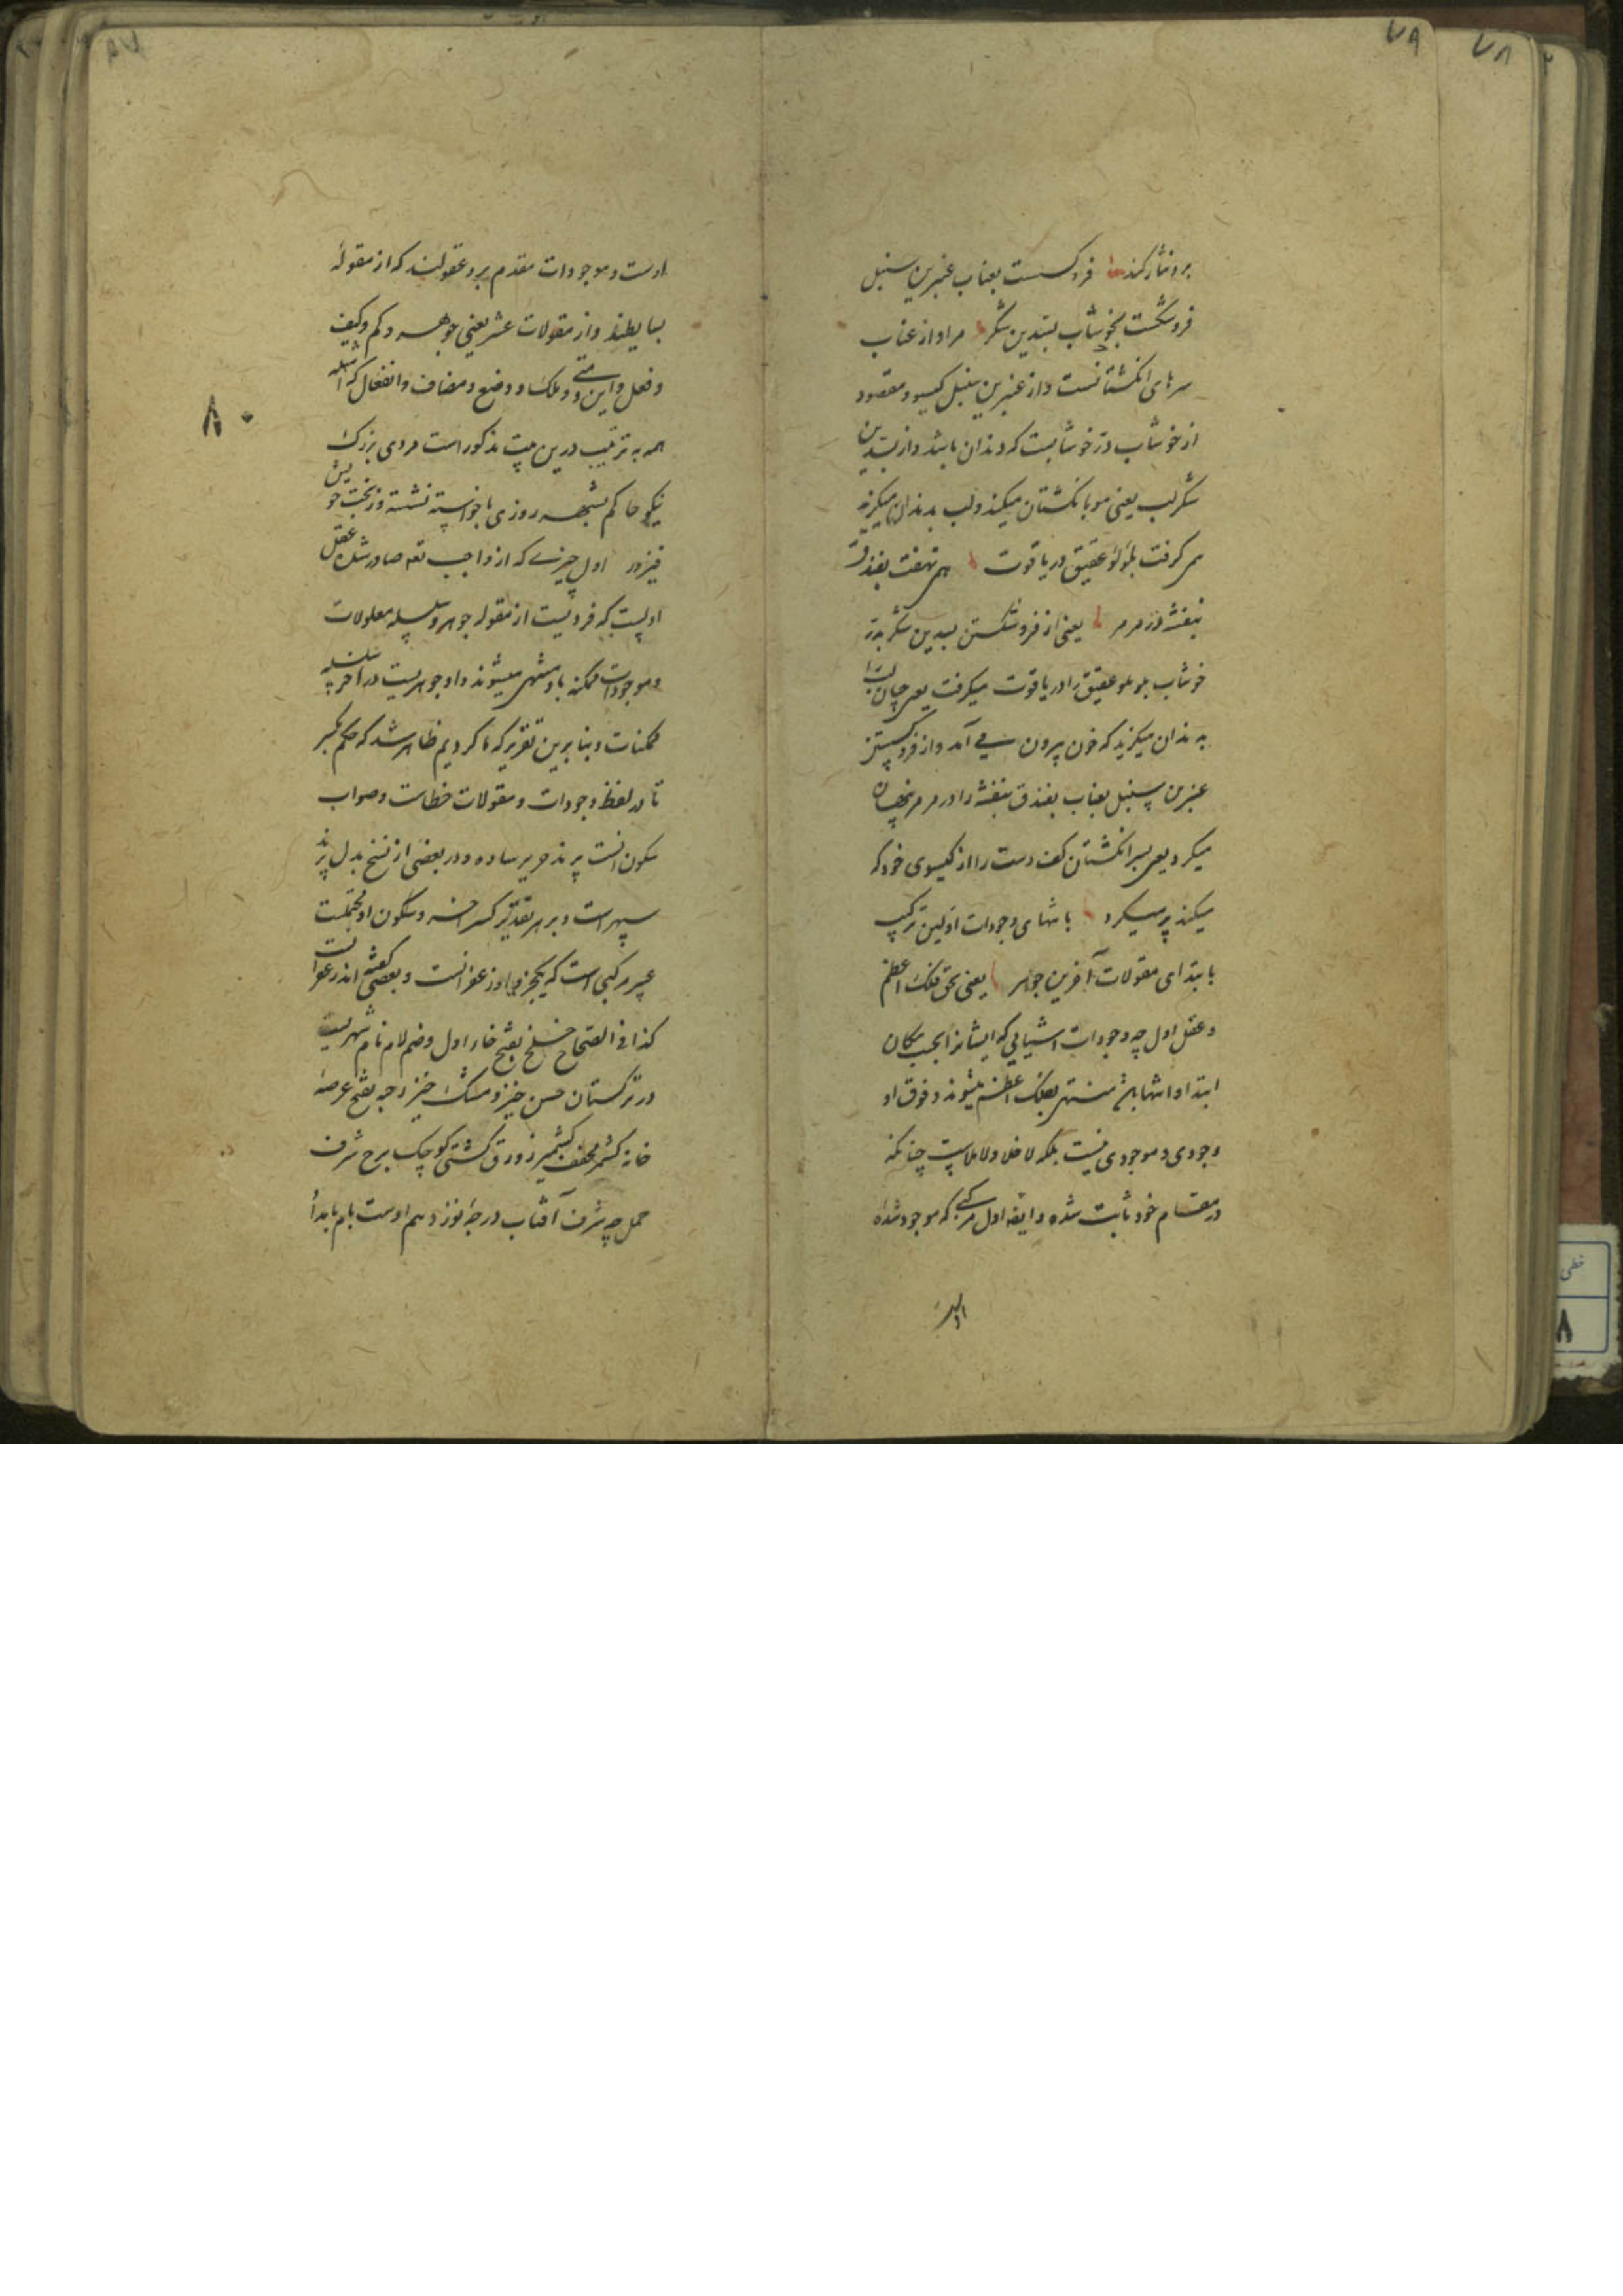 ۷۹
۷۸
بر و نثار کند فرو کسست بعناب عنبرین سنبل
فرو شکست بخوشاب بسدین شکر مراد از عناب
سرهای انکشتانست و از عنبرین سنبل کیسو و مقصود
از خوشاب در خوشابست که دندان باشد و از بسدین
شکر لب یعنی مو بانکشتان میکند و لب بدندان میکزید
همی کرفت بلؤلؤ عقیق در یاقوت همی نهفت بفندق
بنفشه در مرمر یعنی از فرو شکستن بسدین شکر بدر
خوشاب بلولو عقیق را در یاقوت میکرفت یعنی چنان لب را
بدندان میکزید که خون بیرون می آمد و از فرو کسستن
عنبرین سنبل بعناب بفندق بنفشه را در مرمر پنهان
میکرد یعنی بسر انکشتان کف دست را از کیسوی خود که
میکند پر میکرد بانتهای وجودات اولین ترکیب
بابتدای مقولات آخرین جوهر یعنی بحق فلک اعظم
و عقل اول چه وجودات اشیایی که ایشانرا بحسب مکان
ابتدا و انتها باشد منتهی بفلک اعظم میشوند و فوق او
وجودی و موجودی نیست بلکه لا خلا و لا ملاست چنانکه
در مقام خود ثابت شده و ایضا اول مرکبی که موجود شده
اوست
اوست و موجودات مقدم برو عقولند که از مقوله
بسایطند و از مقولات عشر یعنی جوهر و کم و کیف
و فعل و این و متی و ملک و وضع و مضاف و انفعال که امثله
همه به ترتیب درین بیت مذکور است مردی بزرک
نیکو حاکم بشهر روزی با خواسته نشسته وز بخت خویش
فیروز اول چیزی که از واجب تعه صادر شد عقل
اولست که فردیست از مقوله جوهر و سلسله معلولات
و موجودات ممکنه باو منتهی میشوند و او جوهریست در آخر سلسله
ممکنات و بنا برین تقریر که ما کردیم ظاهر شد که حکم بکسر
تا در لفظ وجودات و مقولات خطاست و صواب
سکون انست پرند حریر ساده و در بعضی از نسخ بدل پرند
سپهر است و بر هر تقدیر کسر آخر و سکون او محتملست
عبیر مرکبی است که یکجزو او زعفرانست و بعضی کفته اند زعفرانست
کذا فی الصحاح خلخ بفتح خاء اول و ضم لام نام شهریست
در ترکستان حسن خیز و مشک خیز رحبه بفتح عرصه
خانه کشمر مخفف کشمیر زورق کشتی کوچک برج شرف
حمل چه شرف آفتاب در درجه نوزدهم اوست بام بامداد
۸۰
خطی
۸